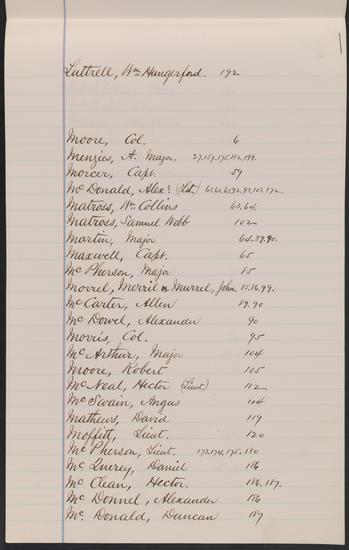 Luttrell, Wm Hungerford. 192
Moore, Col. 6
Menzies, A. Major. 27.159.175.182.199.
Morcer, Capt. 59
McDonald, Alexr (Lt.)
Matross, Wm Collins 63.64.
Matross, Samuel Webb 102
Martin, Major 64.89.90.
Maxwell, Capt. 65
McPherson, Major 85
Morrel, Merril or Murrel, John. 85.86.99.
McCarter, Allen 89.90
McDowel, Alexander 90
Morris, Col. 95
McArthur, Major 104
Moore, Robert 105
McNeal, Hector (Lieut) 112
McSwain, Angus 114
Mathews, David 119
Moffitt, Lieut. 120
McPherson, Lieut. 172.174.175.180
McQuerey, Daniel 186
McClean, Hector. 186.187.
McDonnel, Alexander 186
Mc. Donald, Duncan 187